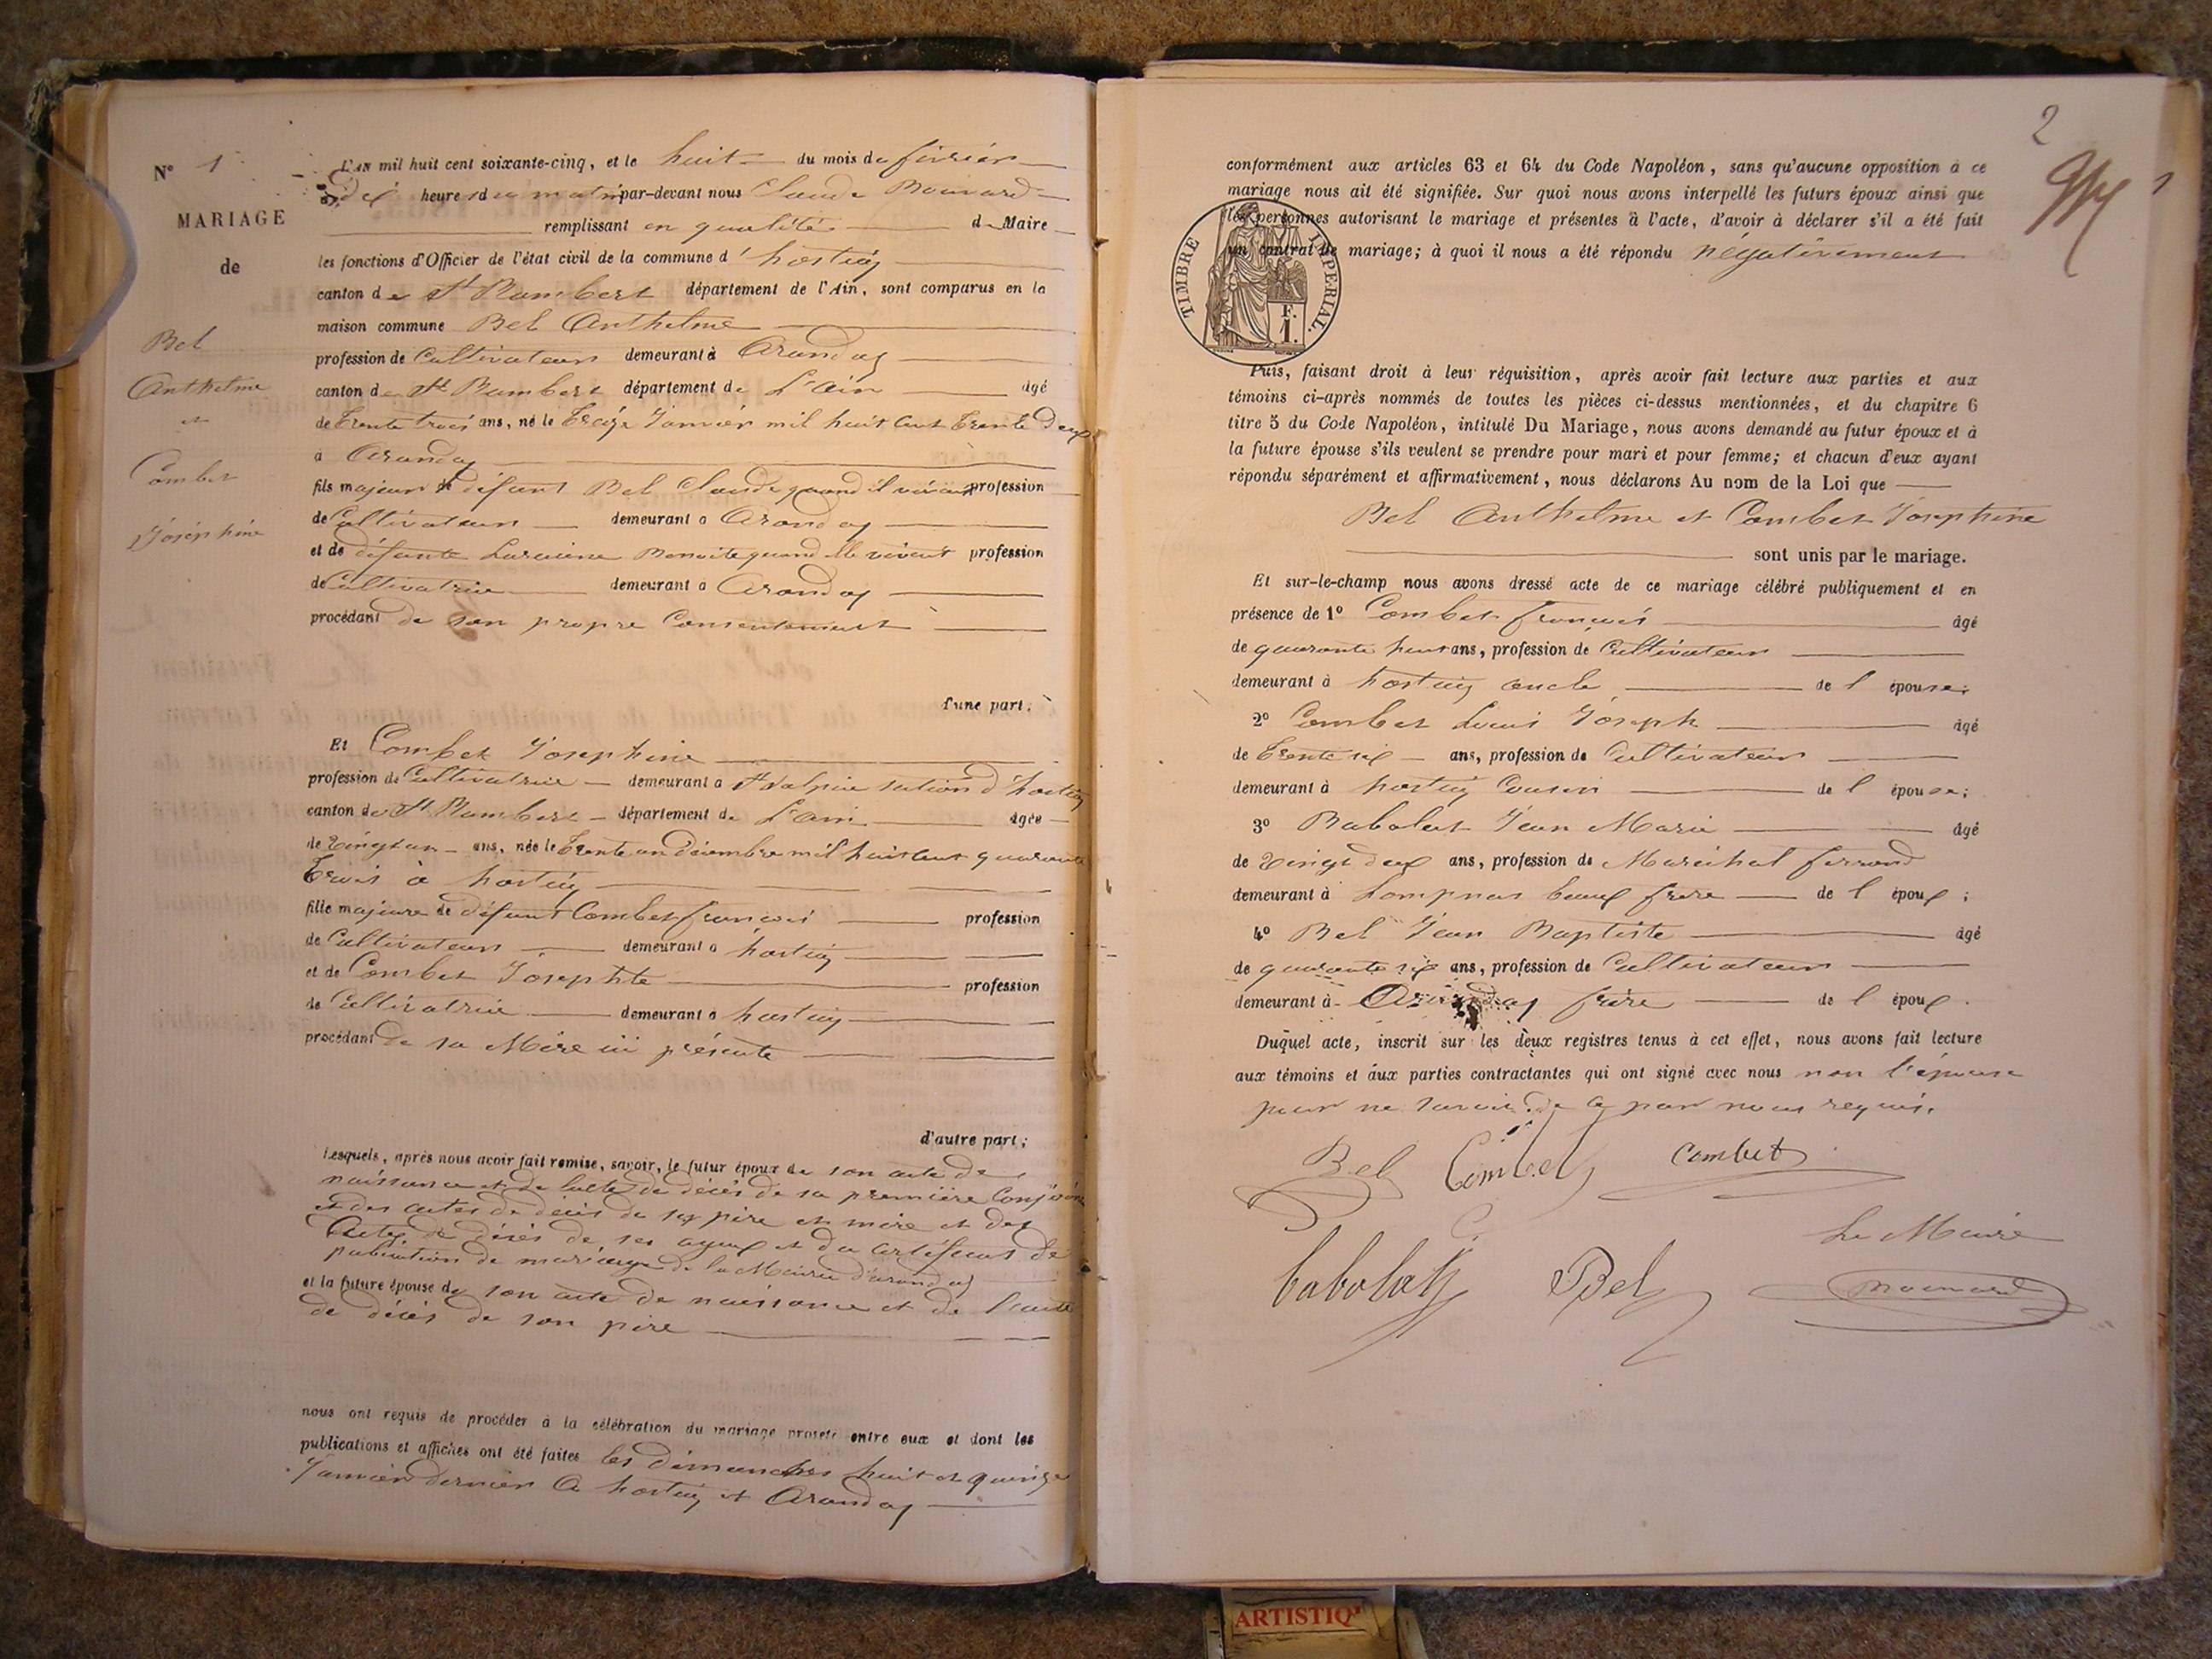 N° 1
MARIAGE
de
Bel
Anthelme
et
Combet
Joséphine
L'AN mil huit cent soixante-cinq, et le huit du mois de février
dix heures du matin par-devant nous Claude
remplissant en qualité de Maire
les fonctions d'Officier de l'état civil de la commune d'hostiaz
canton de St Rambert département de l'Ain, sont comparus en la
maison commune Bel Anthelme
profession de Cultivateur demeurant à Arandas
canton de St Rambert département de L'ain âgé
de trente trois ans, né le treize Janvier mil huit cent trente deux
à Arandas
fils majeur de défunt Bel Claude quand il vivait profession
de Cultivateur demeurant à Arandas
et de défunte Benoite quand elle vivait profession
de Cultivatrice demeurant à Arandas
procédant de son propre Consentement
d'une part;
Et Combet Josephine
profession de Cultivatrice demeurant à section d'hostiaz
canton de St Rambert département de L'ain âgée
de vingt un ans, née le trente un décembre mil huit cent quarante
trois à hostiaz
fille majeure de défunt Combet françois profession
de Cultivateur demeurant à hostiaz
et de Combet Josephte profession
de Cultivatrice demeurant à hostiaz
procédant de sa Mère ici présente
d'autre part;
Lesquels, après nous avoir fait remise, savoir, le futur époux de son acte de
naissance et de l'acte de décès de sa première Conjointe
et des actes de décès de ses père et mère et des
Actes de décès de ses ayeux et du certificat de
publication de mariage de la Mairie d'arandas
et la future épouse de son acte de naissance et de l'acte
de décès de son père
nous ont requis de procéder à la célébration du mariage projeté entre eux et dont les
publications et affiches ont été faites les dimanches huit et quinze
Janvier dernier à hostiaz et Arandas
2
conformément aux articles 63 et 64 du Code Napoléon, sans qu'aucune opposition à ce
mariage nous ait été signifiée. Sur quoi nous avons interpellé les futurs époux ainsi que
les personnes autorisant le mariage et présentes à l'acte, d'avoir à déclarer s'il a été fait
un contrat de mariage; à quoi il nous a été répondu négativement
TIMBRE IMPERIAL.
F.
1.
Puis, faisant droit à leur réquisition, après avoir fait lecture aux parties et aux
témoins ci-après nommés de toutes les pièces ci-dessus mentionnées, et du chapitre 6
titre 5 du Code Napoléon, intitulé Du Mariage, nous avons demandé au futur époux et à
la future épouse s'ils veulent se prendre pour mari et pour femme; et chacun d'eux ayant
répondu séparément et affirmativement, nous déclarons Au nom de la Loi que
Bel Anthelme et Combet Josephine
sont unis par le mariage.
Et sur-le-champ nous avons dressé acte de ce mariage célébré publiquement et en
présence de 1° Combet françois âgé
de quarante ans, profession de Cultivateur
demeurant à hostiaz oncle de l'épouse;
2° Combet Louis Joseph âgé
de trente six ans, profession de Cultivateur
demeurant à hostiaz Cousin de l'épouse;
3° Babolat Jean Marie âgé
de vingt deux ans, profession de Maréchal ferrand
demeurant à Lompnas beaux frere de l'époux;
4° Bel Jean Baptiste âgé
de quarante six ans, profession de Cultivateur
demeurant à Arandas frère de l'époux.
Duquel acte, inscrit sur les deux registres tenus à cet effet, nous avons fait lecture
aux témoins et aux parties contractantes qui ont signé avec nous non l'épouse
pour ne savoir de ce par nous requis.
Bel Combet Combet
babolat Bel
Le Maire
ARTISTIQ